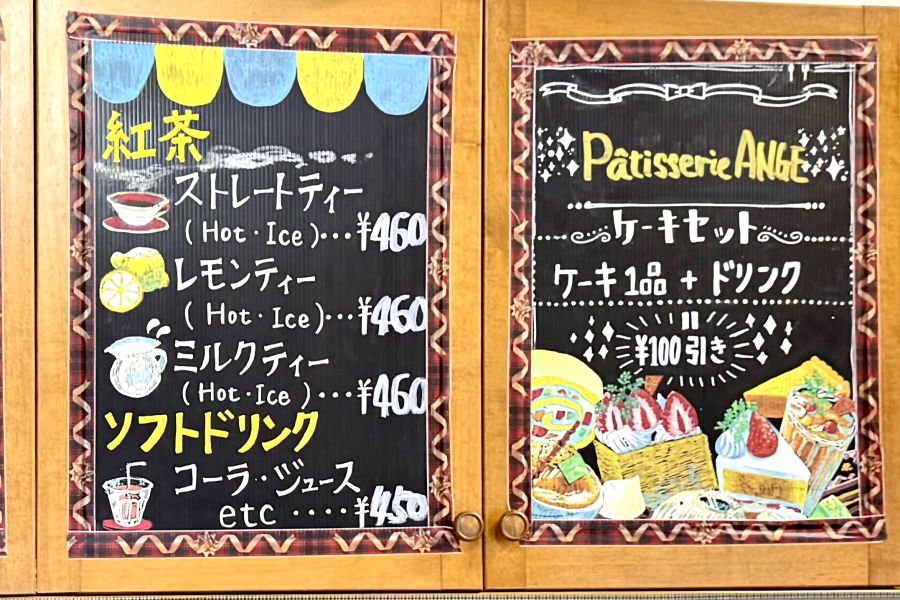 紅茶
ストレートティー
(Hot・Ice)…¥460
レモンティー
(Hot・Ice)…¥460
ミルクティー
(Hot・Ice)…¥460
ソフトドリンク
コーラ・ジュース
etc ‥‥¥450
Pâtisserie ANGE
ケーキセット
ケーキ1品 + ドリンク
=
¥100引き